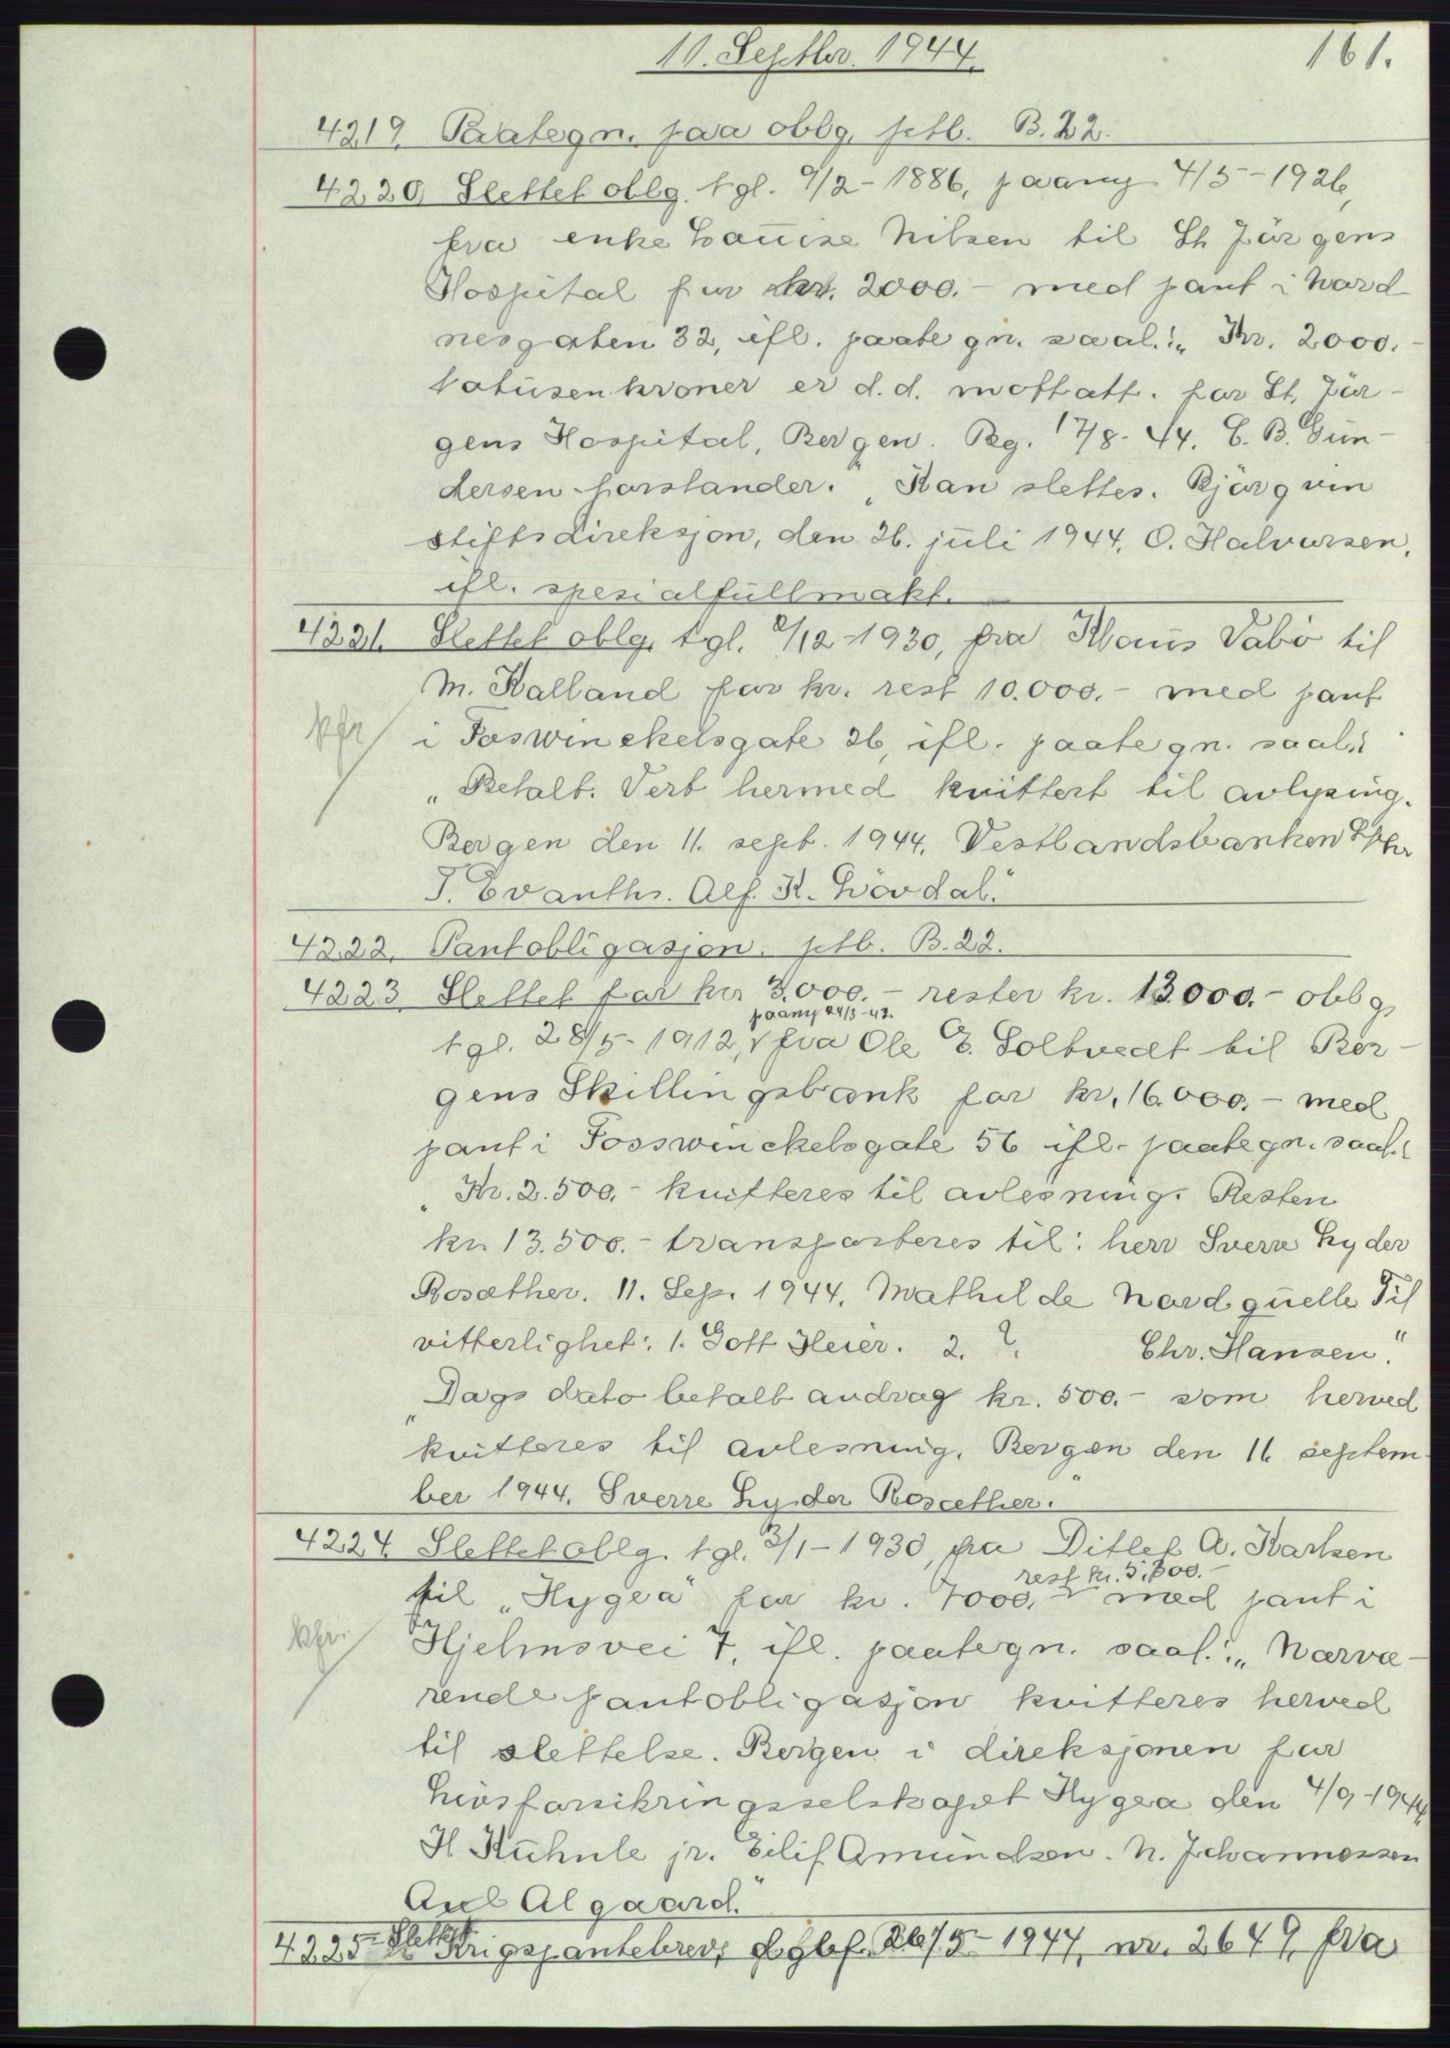 11. Septbr. 1944.
161.
4219. Paategn. paa oblg. ptb. B. 22.
4220 Slettet oblg. tgl. 9/2 - 1886, paany 4/5 - 1926,
fra enke Lauise Nilsen til St. Jörgens
Hospital for kr. 2000.- med pant i Nord
nesgaten 32, ifl. paategn. saal.: „Kr. 2000.-
totusenkroner er d.d. mottatt. for St. Jör-
gens Hospital, Bergen. Bg. 17/8-44. C. B. Gun-
dersen forstander." „Kan slettes. Björgvin
stiftsdireksjon, den 26. juli 1944. O. Halvorsen,
ifl. spesialfullmakt.
4221. Slettet oblg. tgl. 8/12-1930, fra Klaus Vabö til
M. Kalland for kr. rest 10.000.- med pant
kfr
i Foswinckelsgate 26, ifl. paategn. saal.:
„Betalt. Verb hermed kvittert til avlysing.
Bergen den 11. sept. 1944. Vestlandsbanken
T. Evanths. Alf. K. Lövdal."
4222. Pantobligasjon. ptb. B. 22.
4223 Slettet for kr 3.000.- rester kr. 13000.- oblg,
paany 24/3-43.
tgl. 28/5-1912, v fra Ole E. Soltvedt til Ber-
gens Skillingsbank for kr. 16.000.- med
pant i Fosswinckelsgate 56 ifl. paategn. saal.:
„Kr. 2.500.- kvitteres til avlesning. Resten
kr. 13.500.- transporteres til: herr Sverre Lyder
Rosæther. 11. Sep. 1944. Mathilde Nordquelle Til
vitterlighet: 1. Gott Heier. 2. ?. Chr. Hansen."
„Dags dato betalt avdrag kr. 500.- som herved
kvitteres til avlesning. Bergen den 11. septem-
ber 1944. Sverre Lyder Rosæther."
4224. Slettet oblg. tgl. 3/1-1930, fra Ditlef A. Karlsen
rest kr. 5.800.-
til „Hygea" for kr. 7000.- v med pant i
kfr.
Hjelmsvei 7, ifl. paategn. saal.: „Nærvæ-
rende pantobligasjon kvitteres herved
til slettelse. Bergen i direksjonen for
Livsforsikringsselskapet Hygea den 4/9-1944
H Kuhnle jr. Eilif Amundsen. N. Johannessen
Axel Algaard."
4225 Slettet Krigspantebrev, dgbf. 26/5-1944, nr. 2649, fra